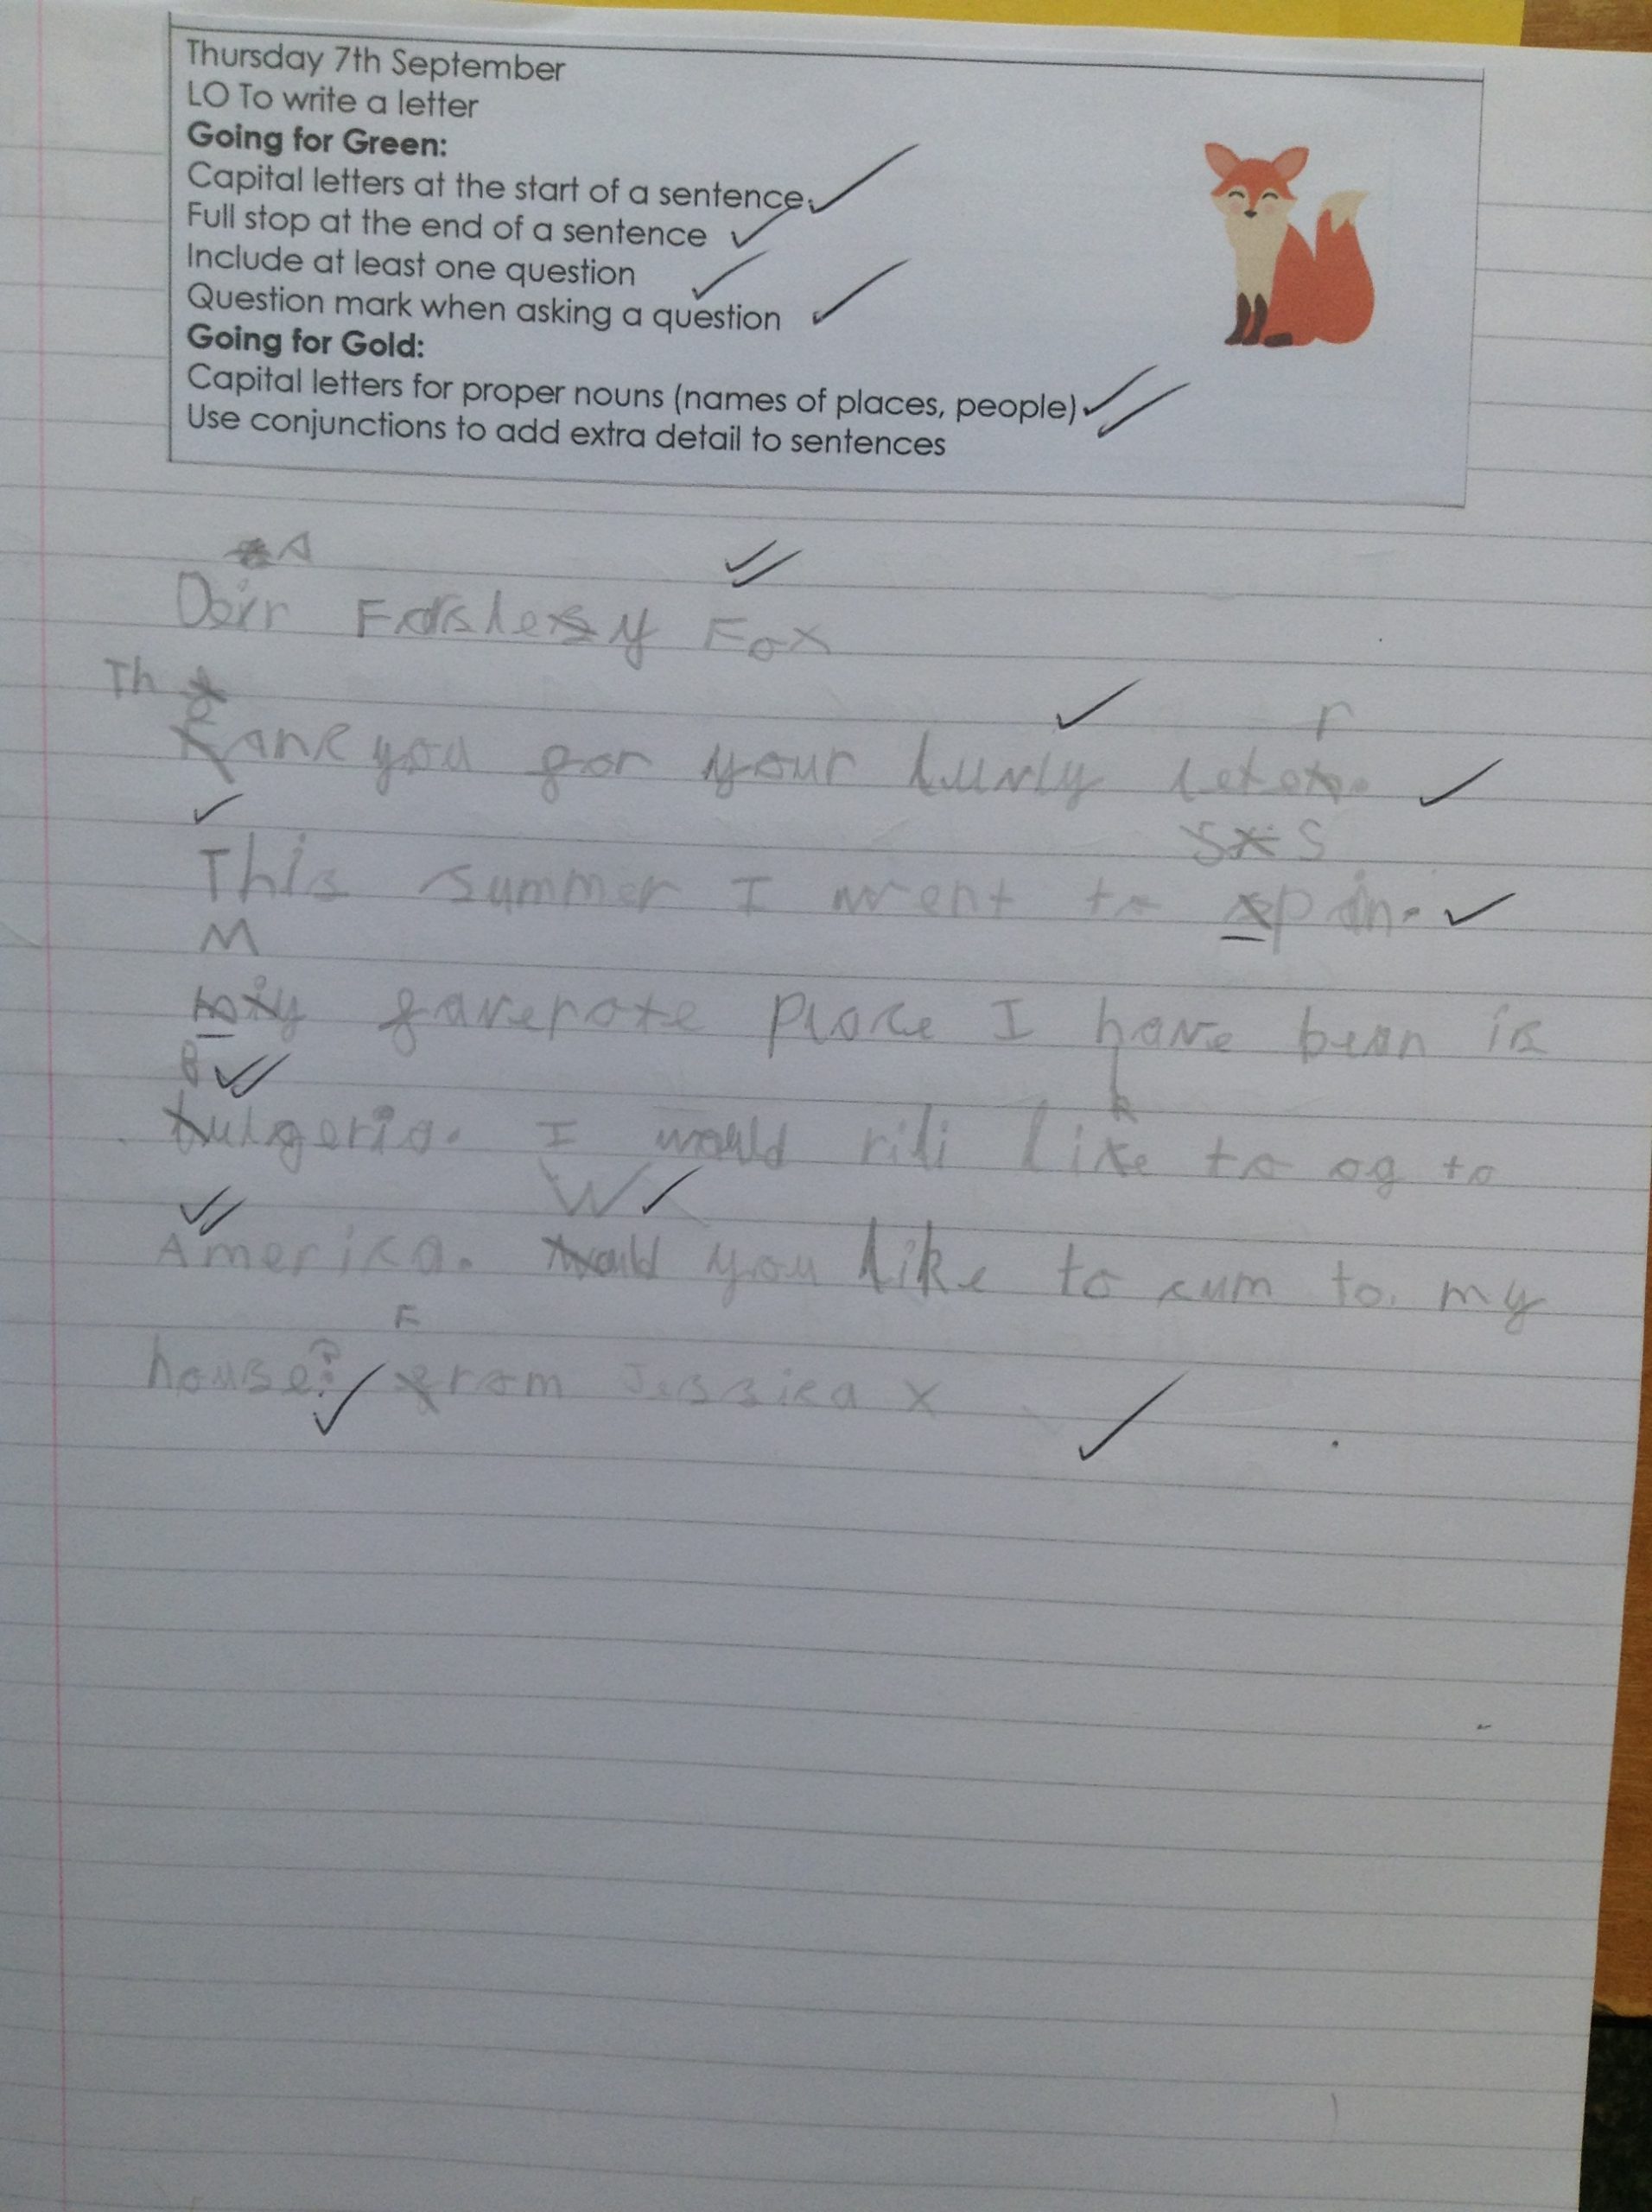 Thursday 7th September
LO To write a letter
Going for Green:
Capital letters at the start of a sentence.
Full stop at the end of a sentence
Include at least one question
Question mark when asking a question
Going for Gold:
Capital letters for proper nouns (names of places, people)
Use conjunctions to add extra detail to sentences
Fox
Th
ank you for your luvly
r
This summer I went to
S
pain.
M
y faverote place I have bean is
B
ulgeria. I would rili like to og to
W
Amerika. would you like to cum to my
F
house? from Jessica x